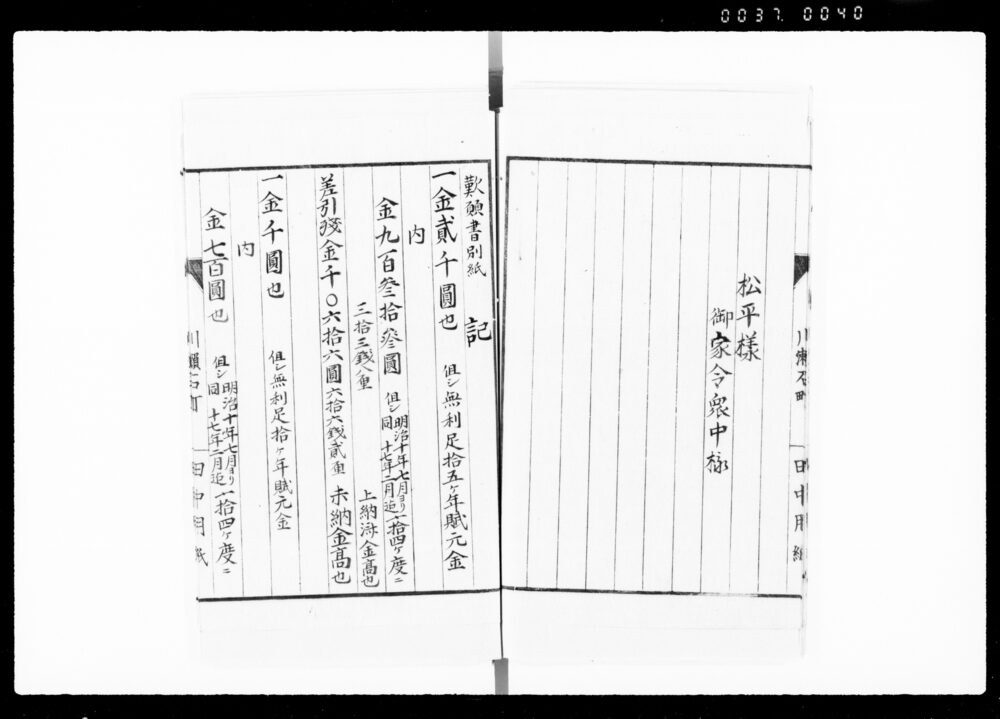 0037 0040
松平様
御家令衆中様
川瀬石町
田中用紙
歎願書別紙
記
一金貳千圓也 但シ無利足拾五ヶ年賦元金
内
金九百叄拾叄圓 但シ明治十年七月ヨリ同十七年二月迄 一拾四ヶ度ニ
三拾三銭八重 上納済金高也
差引残金千〇六拾六圓六拾六銭貳重 未納金高也
一金千圓也 但シ無利足拾ヶ年賦元金
内
金七百圓也 但シ明治十年七月ヨリ同十七年二月迄 一拾四ヶ度ニ
川瀬石町
田中用紙